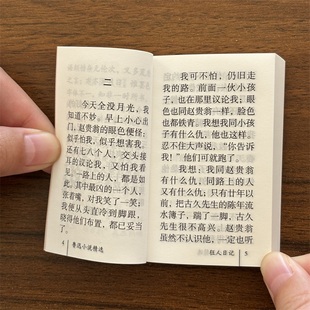 二
今天全没月光，我
知道不妙。早上小心出
门，赵贵翁的眼色便怪：
似乎怕我，似乎想害我。
还有七八个人，交头接
耳的议论我，又怕我看
见。一路上的人，都是如
此。其中最凶的一个人，
张着嘴，对我笑了一笑；
我便从头直冷到脚跟，
晓得他们布置，都已妥当
了。
4 鲁迅小说精选
我可不怕，仍旧走
我的路。前面一伙小孩
子，也在那里议论我；眼
色也同赵贵翁一样，脸色
也都铁青。我想我同小孩
子有什么仇，他也这样。
忍不住大声说，“你告诉
我！”他们可就跑了。
我想：我同赵贵翁
有什么仇，同路上的人
又有什么仇；只有廿年以
前，把古久先生的陈年流
水簿子，踹了一脚，古
久先生很不高兴。赵贵翁
虽然不认识他，一定也听
狂人日记 5